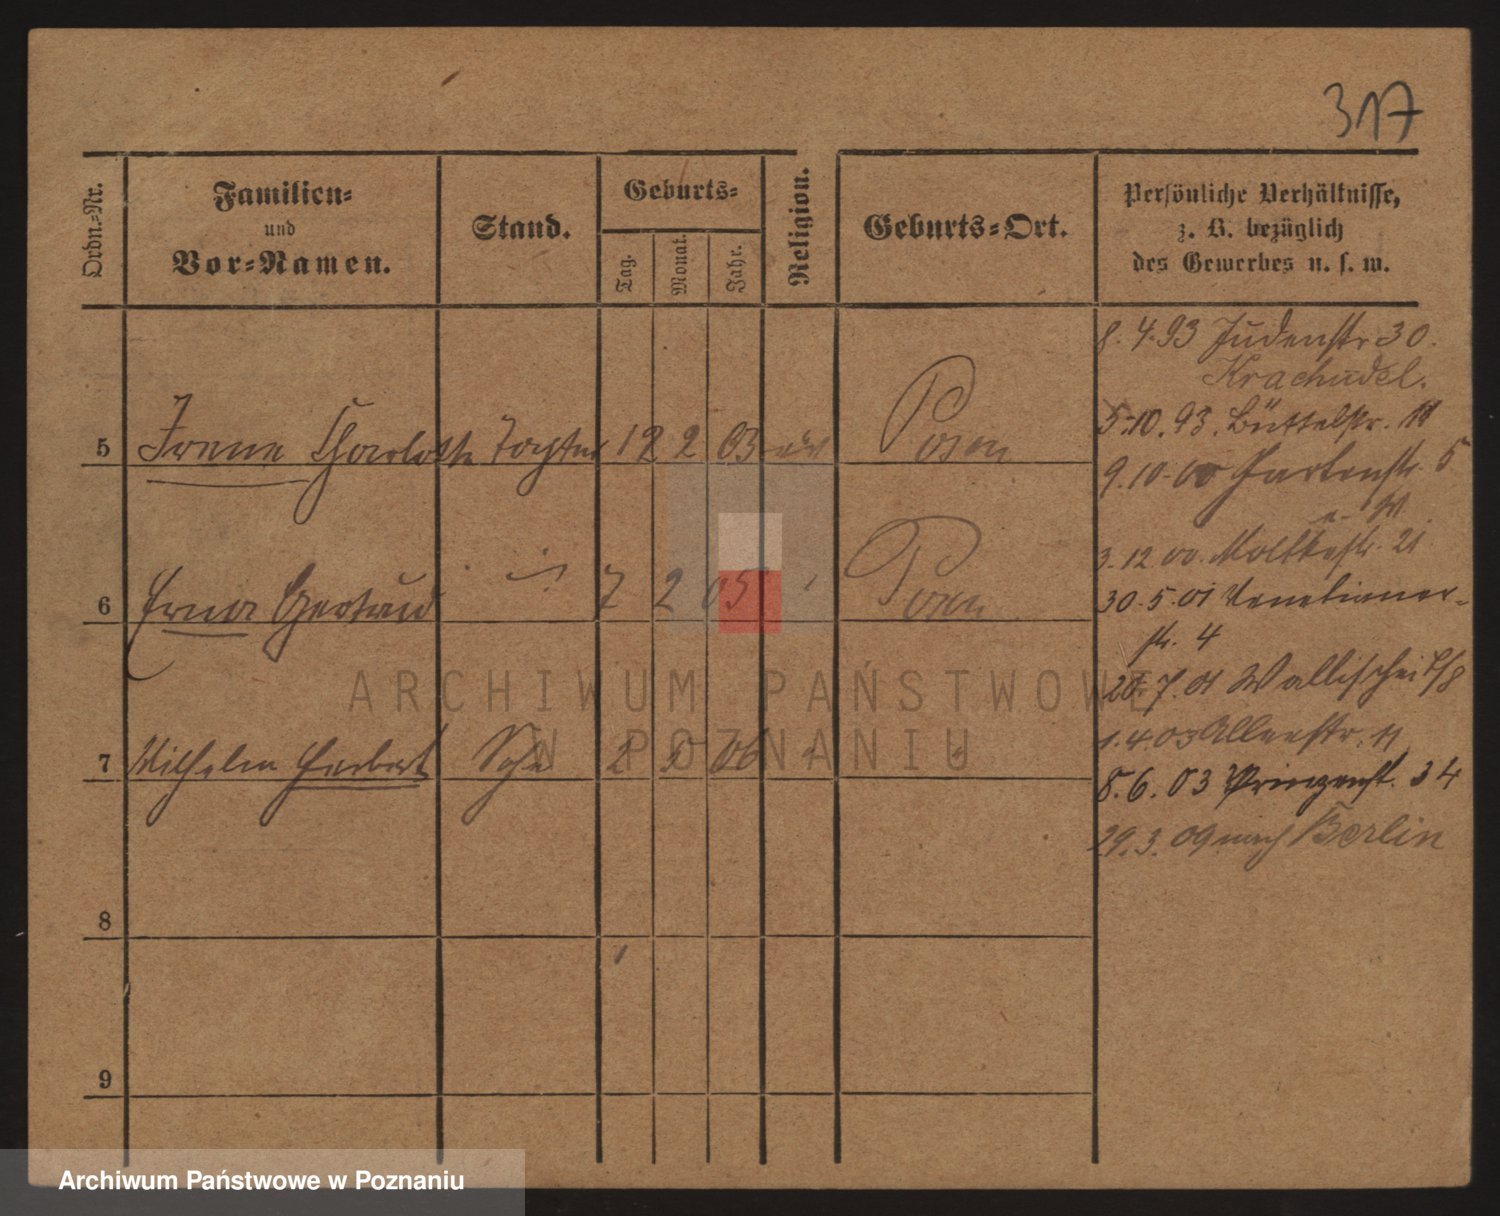 317
Ordn.-Nr.
Familien-
und
Vor-Namen.
Stand.
Geburts-
Tag.
Monat.
Jahr.
Religion.
Geburts-Ort.
Persönliche Verhältnisse,
z. B. bezüglich
des Gewerbes u. s. w.
8.4.93 Judenstr 30.
Krachudel.
5.10.93. Büttelstr. 11
9.10.00 Gartenstr. 5
3.12.00. Moltkestr. 21
30.5.01 Venetianer-
str. 4
7.01 Wallischei
1.4.03 Allerstr. 11
8.6.03 Prinzenst. 34
29.3.09 nach Berlin
5 Irene Charlotte Tochter 12 2 03 Posen
6 Erna Gertrud 7 2 05 Posen
7 Wilhelm Herbert Sohn 2 06
8
9
ARCHIWUM PAŃSTWOWE
W POZNANIU
Archiwum Państwowe w Poznaniu